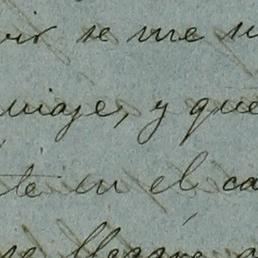 se me
viaje, y que
te en el ca
se llegare